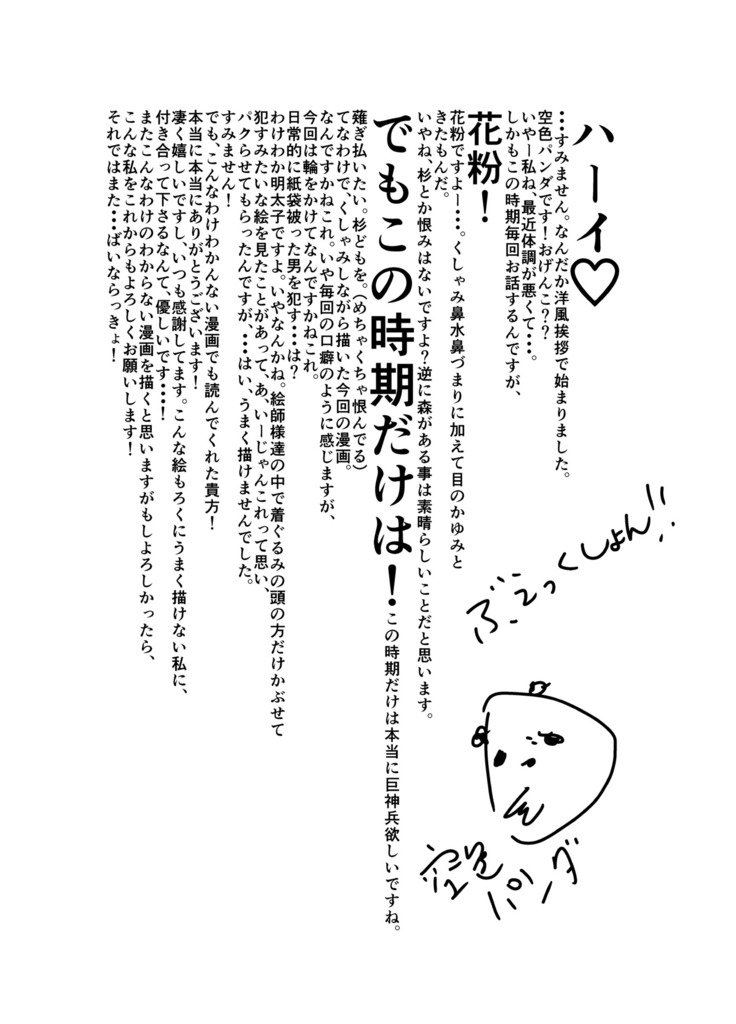 ハーイ♡
…すみません。なんだか洋風挨拶で始まりました。
空色パンダです！おげんこ？？
いやー私ね、最近体調が悪くて…。
しかもこの時期毎回お話するんですが、
花粉！
花粉ですよー…。くしゃみ鼻水鼻づまりに加えて目のかゆみと
きたもんだ。
いやね、杉とか恨みはないですよ？逆に森がある事は素晴らしいことだと思います。
でもこの時期だけは！この時期だけは本当に巨神兵欲しいですね。
薙ぎ払いたい。杉どもを。（めちゃくちゃ恨んでる）
てなわけで、くしゃみしながら描いた今回の漫画。
なんですかねこれ。いや毎回の口癖のように感じますが、
今回は輪をかけてなんですかねこれ。
日常的に紙袋被った男を犯す…は？
わけわか明太子ですよ。いやなんかね。絵師様達の中で着ぐるみの頭の方だけかぶせて
犯すみたいな絵を見たことがあって、あ、いーじゃんこれって思い、
パクらせてもらったんですが、…はい、うまく描けませんでした。
すみません！
でも、こんなわけわかんない漫画でも読んでくれた貴方！
本当に本当にありがとうございます！
凄く嬉しいですし、いつも感謝してます。こんな絵もろくにうまく描けない私に、
付き合って下さるなんて、優しいです…！
またこんなわけのわからない漫画を描くと思いますがもしよろしかったら、
こんな私をこれからもよろしくお願いします！
それではまた…ばいならっきょ！
ぶえっくしょん!!
空色
パンダ